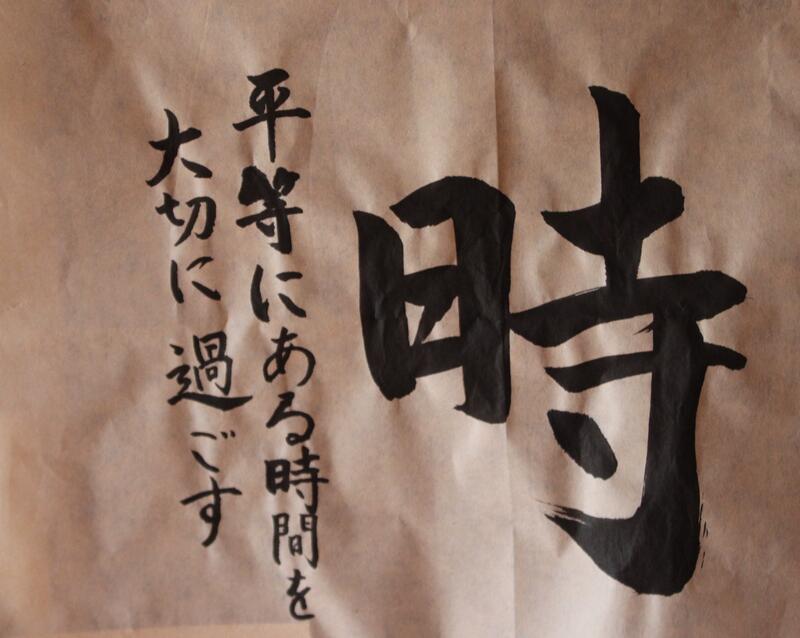 時
平等にある時間を
大切に過ごす